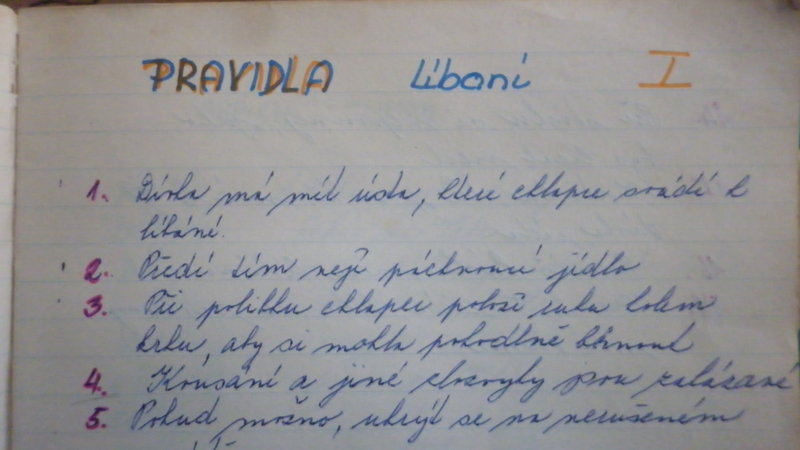 PRAVIDLA líbaní I
1. Dívka má mít ústa, které chlapce svádí k
líbáné.
2. Předí tím nejí páchnoucí jídlo
3. Při polibku chlapec položí ruku kolem
krku, aby si mohla pohodlně
4. Kousání a jiné zlozvyky jsou zakázané
5. Pokud možno, ukrýt se na nerušeném